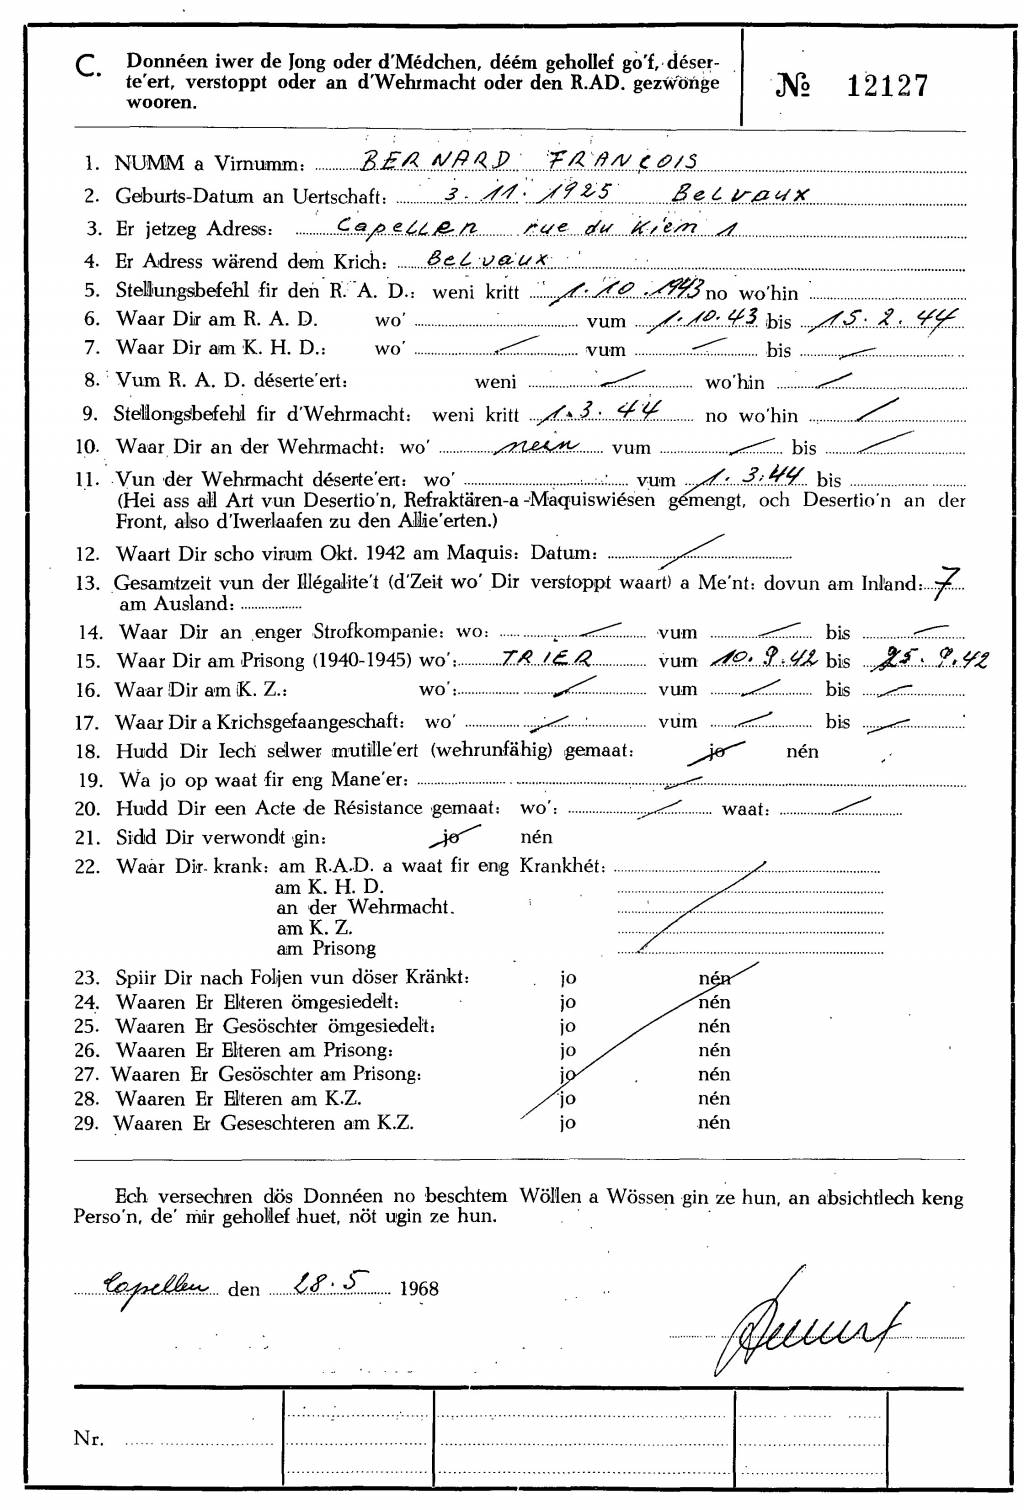 C. Donnéen iwer de Jong oder d'Médchen, déém gehollef go'f, déser-
te'ert, verstoppt oder an d'Wehrmacht oder den R.AD. gezwonge
wooren.
№ 12127
1. NUMM a Virnumm: BERNARD FRANÇOIS
2. Geburts-Datum an Uertschaft: 3. 11. 1925 Belvaux
3. Er jetzeg Adress: Capellen rue du Kiem 1
4. Er Adress wärend dem Krich: Belvaux
5. Stellungsbefehl fir den R. A. D.: weni kritt 1. 10. 1943 no wo'hin
6. Waar Dir am R. A. D. wo' vum 1. 10. 43 bis 15. 2. 44
7. Waar Dir am K. H. D.: wo' vum bis
8. Vum R. A. D. déserte'ert: weni wo'hin
9. Stellongsbefehl fir d'Wehrmacht: weni kritt 1. 3. 44 no wo'hin
10. Waar Dir an der Wehrmacht: wo' nein vum bis
11. Vun der Wehrmacht déserte'ert: wo' vum 1. 3. 44 bis
(Hei ass all Art vun Desertio'n, Refraktären-a-Maquiswiésen gemengt, och Desertio'n an der
Front, also d'Iwerlaafen zu den Allie'erten.)
12. Waart Dir scho virum Okt. 1942 am Maquis: Datum:
13. Gesamtzeit vun der Illégalite't (d'Zeit wo' Dir verstoppt waart) a Me'nt: dovun am Inland: 7
am Ausland:
14. Waar Dir an enger Strofkompanie: wo: vum bis
15. Waar Dir am Prisong (1940-1945) wo': TRIER vum 10. 9. 42 bis 25. 9. 42
16. Waar Dir am K. Z.: wo': vum bis
17. Waar Dir a Krichsgefaangeschaft: wo' vum bis
18. Hudd Dir Iech selwer mutille'ert (wehrunfähig) gemaat: jo nén
19. Wa jo op waat fir eng Mane'er:
20. Hudd Dir een Acte de Résistance gemaat: wo': waat:
21. Sidd Dir verwondt gin: jo nén
22. Waar Dir krank: am R.A.D. a waat fir eng Krankhét:
am K. H. D.
an der Wehrmacht.
am K. Z.
am Prisong
23. Spiir Dir nach Foljen vun döser Kränkt: jo nén
24. Waaren Er Elteren ömgesiedelt: jo nén
25. Waaren Er Gesöschter ömgesiedelt: jo nén
26. Waaren Er Elteren am Prisong: jo nén
27. Waaren Er Gesöschter am Prisong: jo nén
28. Waaren Er Elteren am K.Z. jo nén
29. Waaren Er Geseschteren am K.Z. jo nén
Ech versechren dös Donnéen no beschtem Wöllen a Wössen gin ze hun, an absichtlech keng
Perso'n, de' mir gehollef huet, nöt ugin ze hun.
Capellen den 28. 5 1968
Nr.